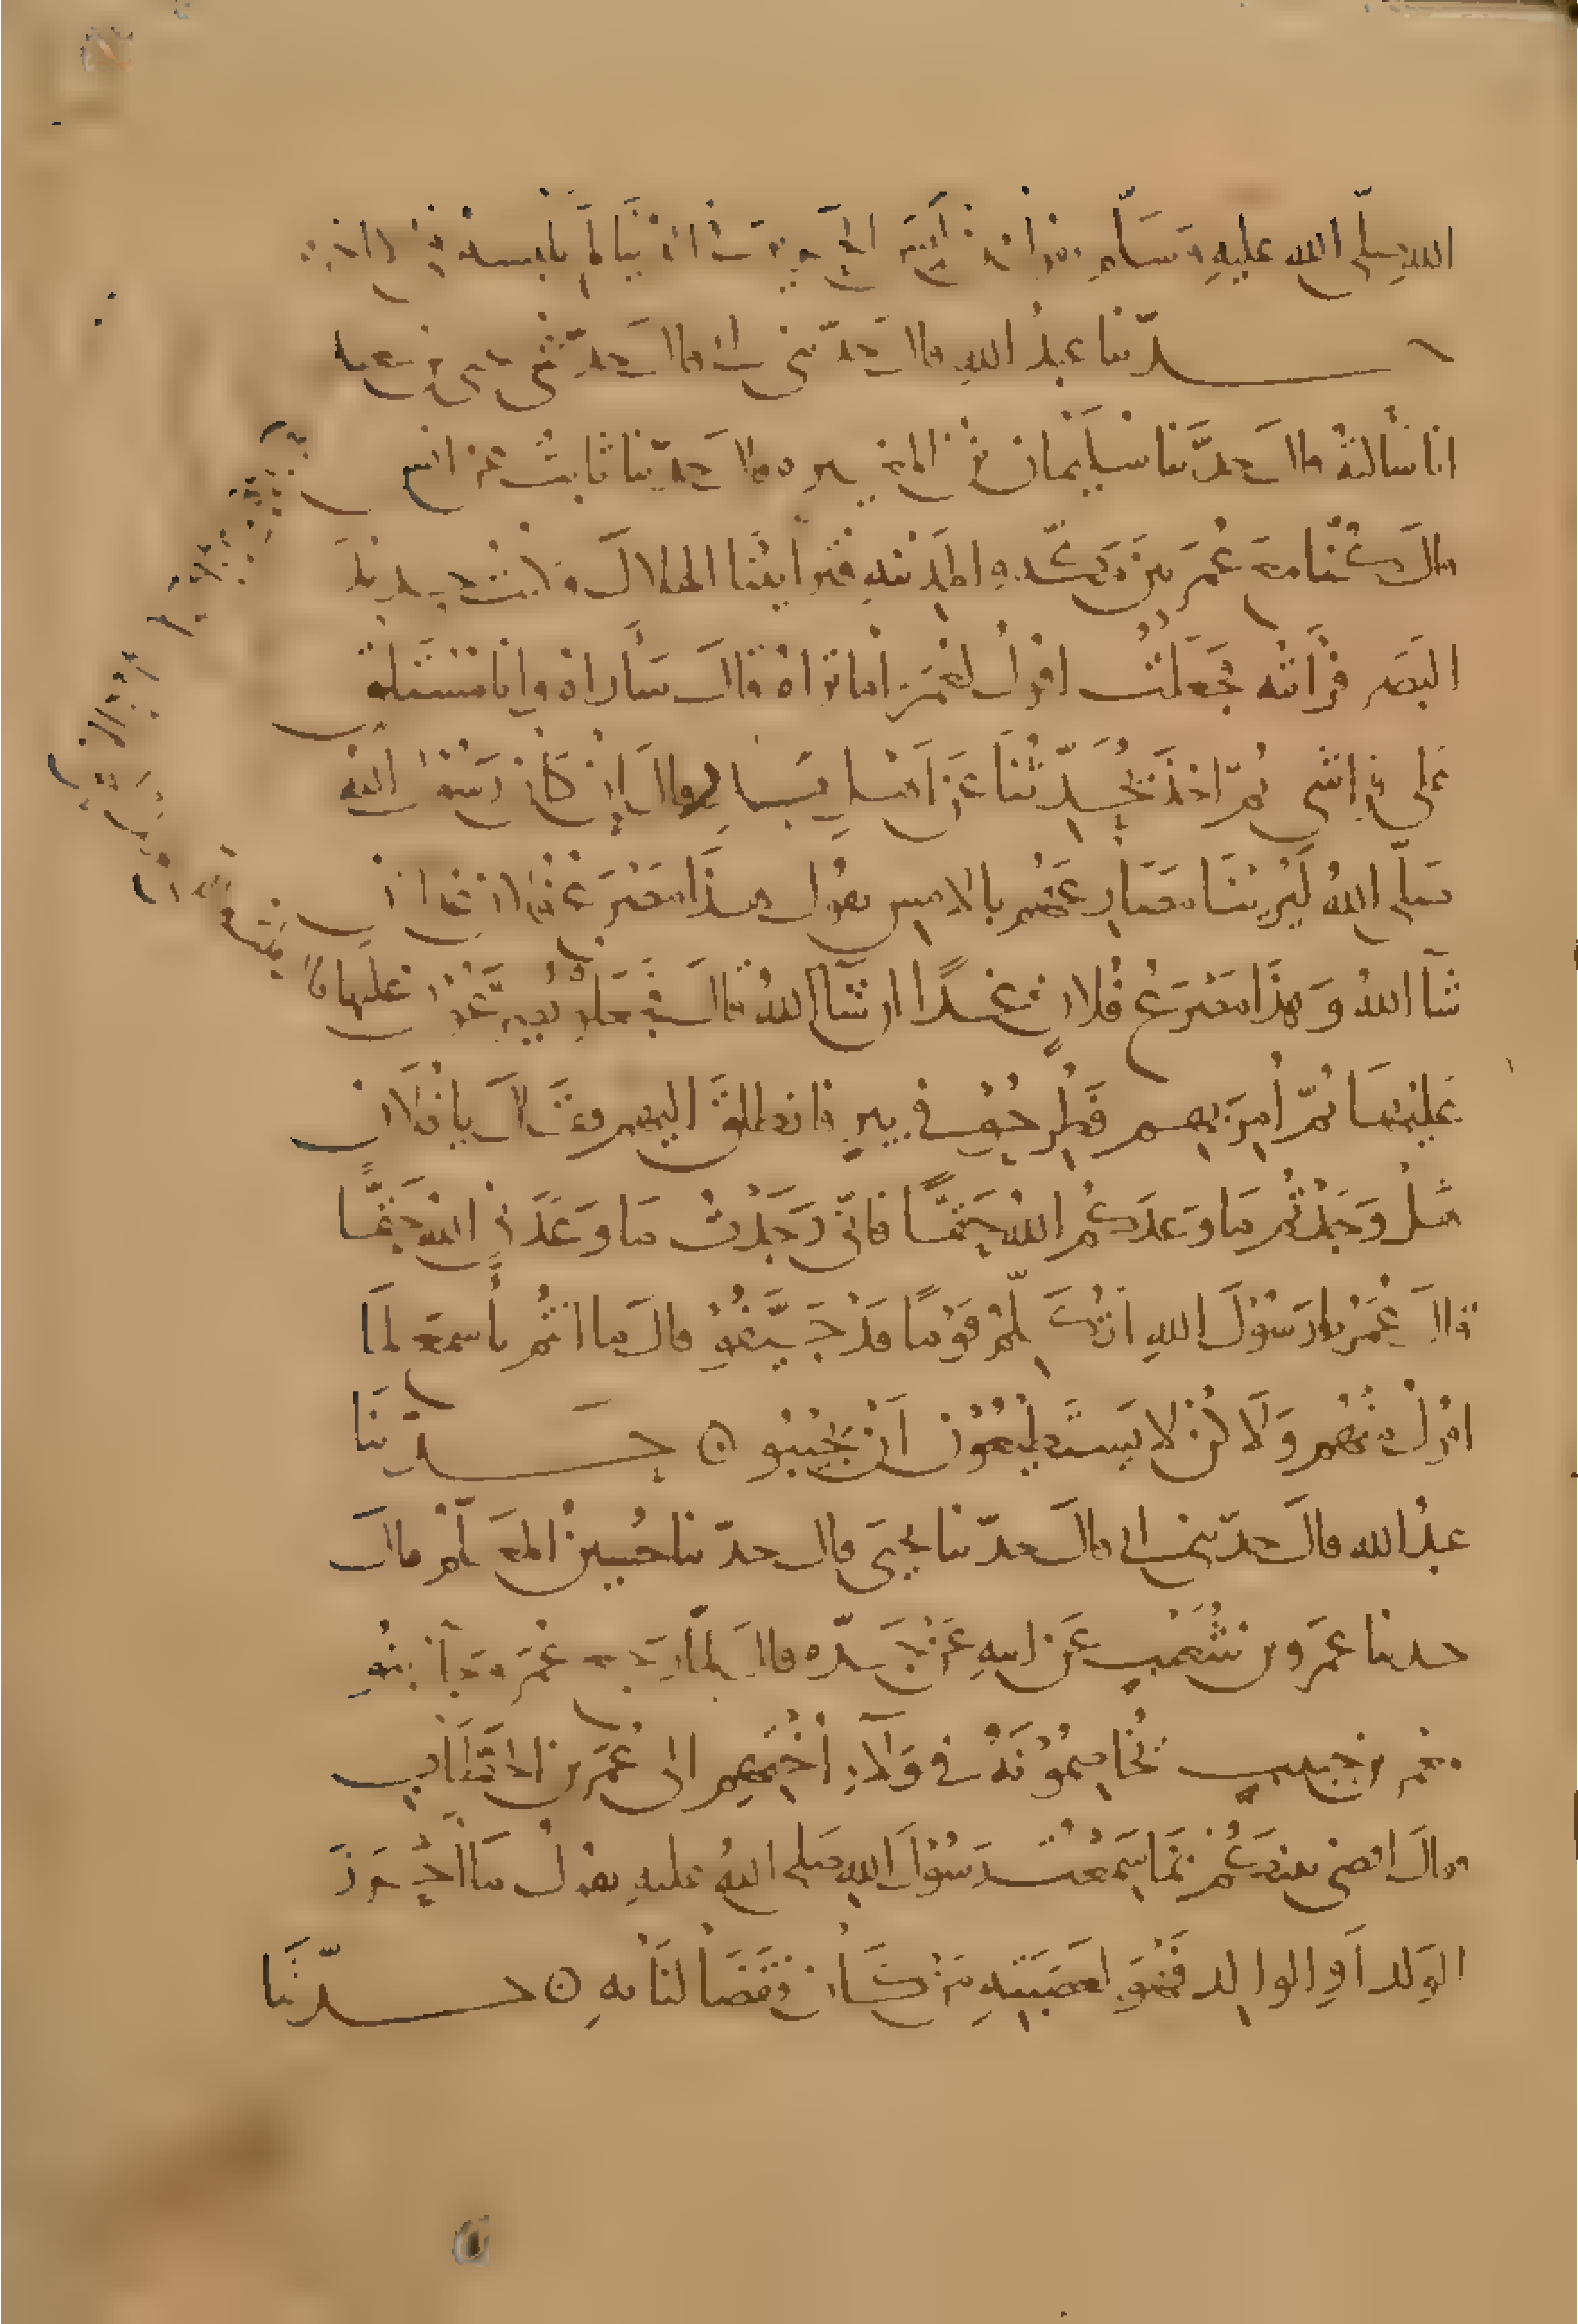 الله صلى الله عليه وسلم يقول من لبس الحرير في الدنيا لم يلبسه في الاخرة
حدثنا عبد الله قال حدثني ابي قال حدثني يحيى بن سعيد
انا سالته قال حدثنا سليمان بن المغيره قال حدثنا ثابت عن انس
قال كنا مع عمر بين مكة والمدينه فتراينا الهلال وكنت حديد
البصر فرأيته فجعلت اقول لعمر اما تراه قال سأراه وانا مستلق
على فراشى ثم اخذ يحدثنا عن اهل بدر قال ان كان رسول الله
صلى الله ليرينا مصارعهم بالامس يقول هذا مصرع فلان غدا ان
شآ الله وهذا مصرع فلان غدا ان شآ الله قال فجعلوا يصرعون عليها
عليها ثم أمر بهم فطرحوا في بير فانطلق اليهم فقال يا فلان
هل وجدتم ما وعدكم الله حقا فانى وجدت ما وعدني الله حقا
قال عمر يا رسول الله اتكلم قوما قد جيفوا قال ما انتم بأسمع لما
اقول منهم ولاكن لا يستطيعون ان يجيبو ۞ حدثنا
عبد الله قال حدثني ابي قال حدثنا يحيى قال حدثنا حسين المعلم قال
حدثنا عمرو بن شعيب عن ابيه عن جده قال لما رجع عمرو جآ بنو
معمر بن حبيب يخاصمونه في ولآء اختهم الى عمر بن الخطاب
فقال اقضى بينكم بما سمعت رسول الله صلى الله عليه يقول ما احرز
الولد او الوالد فهو لعصبته من كان فقضا لنا به ۞ حدثنا